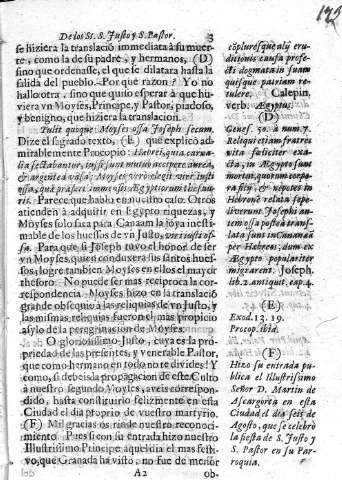 De los SS. S. Justo y S. Pastor. 3
se hiziera la translació immediata à su muer-
te, como la de su padre, y hermanos, (D)
sino que ordenasse, el que se dilatara hasta la
salida del pueblo. Por què razon? Yo no
hallo otra, sino que quiso esperar à que hu-
viera vn Moyses, Principe, y Pastor, piadoso,
y benigno, que hiziera la translacion.
Tulit quoque Moyses ossa Joseph secum.
Dize el sagrado texto, (E) que explicò ad-
mirablemente Procopio:
& argentea vasa; Moyses verò elegit viri iusti
ossa, quà præfert immensos Ægyptiorum thesau-
ris. Parece que habla en nuestro caso. Otros
atienden à adquirir en Egypto riquezas, y
Moyses solo saca para Canaam la joya inesti-
mable de los huessos de vn Justo, veri iusti os-
sa. Para que si Joseph tuvo el honor de ser
vn Moyses, quien conduxera sus santos hues-
sos, logre tambien Moyses en ellos el mayor
thesoro. No puede ser mas reciproca la cor-
respondencia. Moyses hizo en la translació
grande obsequio à las reliquias de vn Justo, y
las mismas reliquias fueron el mas propicio
asylo de la peregrinacion de Moyses.
O gloriosissimo Justo, cuya es la pro-
priedad de las presentes, y venerable Pastor,
que como hermano en todo no te divides! Y
como, si debeis la propagacion de este Culto
à nuestro segundo Moyses, aveis correspon-
dido, hasta constituirlo felizmente en esta
Ciudad el dia proprio de vuestro martyrio.
(F) Mil gracias os rinde nuestro reconoci-
miento. Pues si con su entrada hizo nuestro
Illustrissimo Principe aquel dia el mas festi-
vo, que Granada ha visto, no fue de menor
A2 ob-
cõpluresque alij eru-
ditionis causa profe-
cti dogmata in suam
quisque patriam re-
tulere. Calepin.
verb. Ægyptus.
(D)
Genes. 50. à num. 7.
Reliqui etiam fratres
vita feliciter exa-
cta, in Ægypto sunt
mortui, quorum corpo-
ra filij, & nepotes in
Hebrone relata sepe-
liverunt. Josephi au-
tem ossa postea trans-
lata sunt in Canaam
per Hebræos; dum ex
Ægypto populariter
migrarent. Joseph.
lib. 2. antiquit. cap. 4.
(E)
Exod. 13. 19.
Procop. ibid.
(F)
Hizo su entrada pu-
blica el Illustrissimo
Señor D. Martin de
Ascargorta en esta
Ciudad el dia seis de
Agosto, que se celebrò
la fiesta de S. Justo y
S. Pastor en su Par-
roquia.